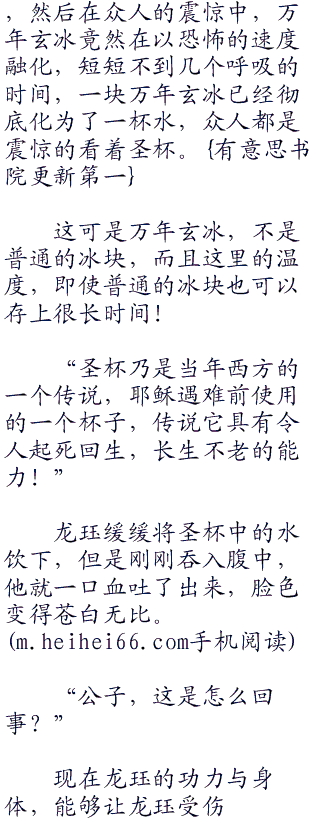 ，然后在众人的震惊中，万
年玄冰竟然在以恐怖的速度
融化，短短不到几个呼吸的
时间，一块万年玄冰已经彻
底化为了一杯水，众人都是
震惊的看着圣杯。{有意思书
院更新第一}
这可是万年玄冰，不是
普通的冰块，而且这里的温
度，即使普通的冰块也可以
存上很长时间！
“圣杯乃是当年西方的
一个传说，耶稣遇难前使用
的一个杯子，传说它具有令
人起死回生，长生不老的能
力！”
龙珏缓缓将圣杯中的水
饮下，但是刚刚吞入腹中，
他就一口血吐了出来，脸色
变得苍白无比。
(m.heihei66.com手机阅读)
“公子，这是怎么回
事？”
现在龙珏的功力与身
体，能够让龙珏受伤